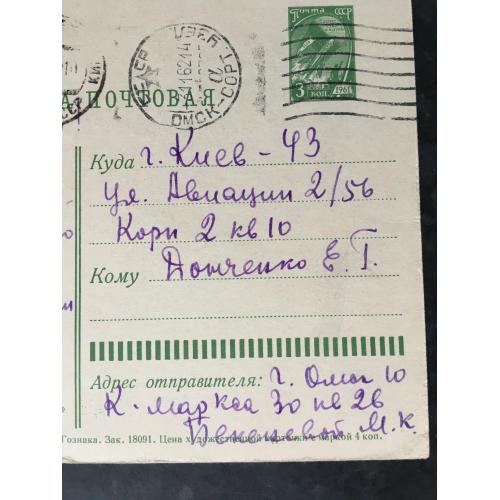 ПОЧТА СССР
3 КОП. 1961
ОМСК-СОРТ.
А ПОЧТОВАЯ
Куда г. Киев - 43
ул. Авиации 2/56
Корп 2 кв 10
Кому Донченко Е. Г.
Адрес отправителя: г. Омск 10
К-Маркса 30 кв 26
М. К.
Гознака. Зак. 18091. Цена художественной карточки с маркой 4 коп.